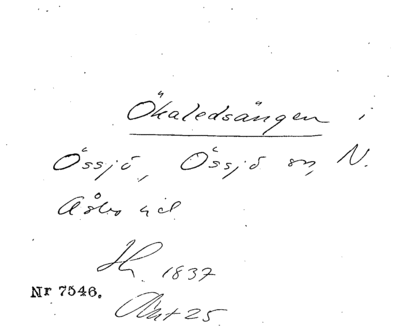 Ökaledsängen i
Össjö, Össjö sn, N.
Åsbo hd
1837
Nr 7546.
Akt 25